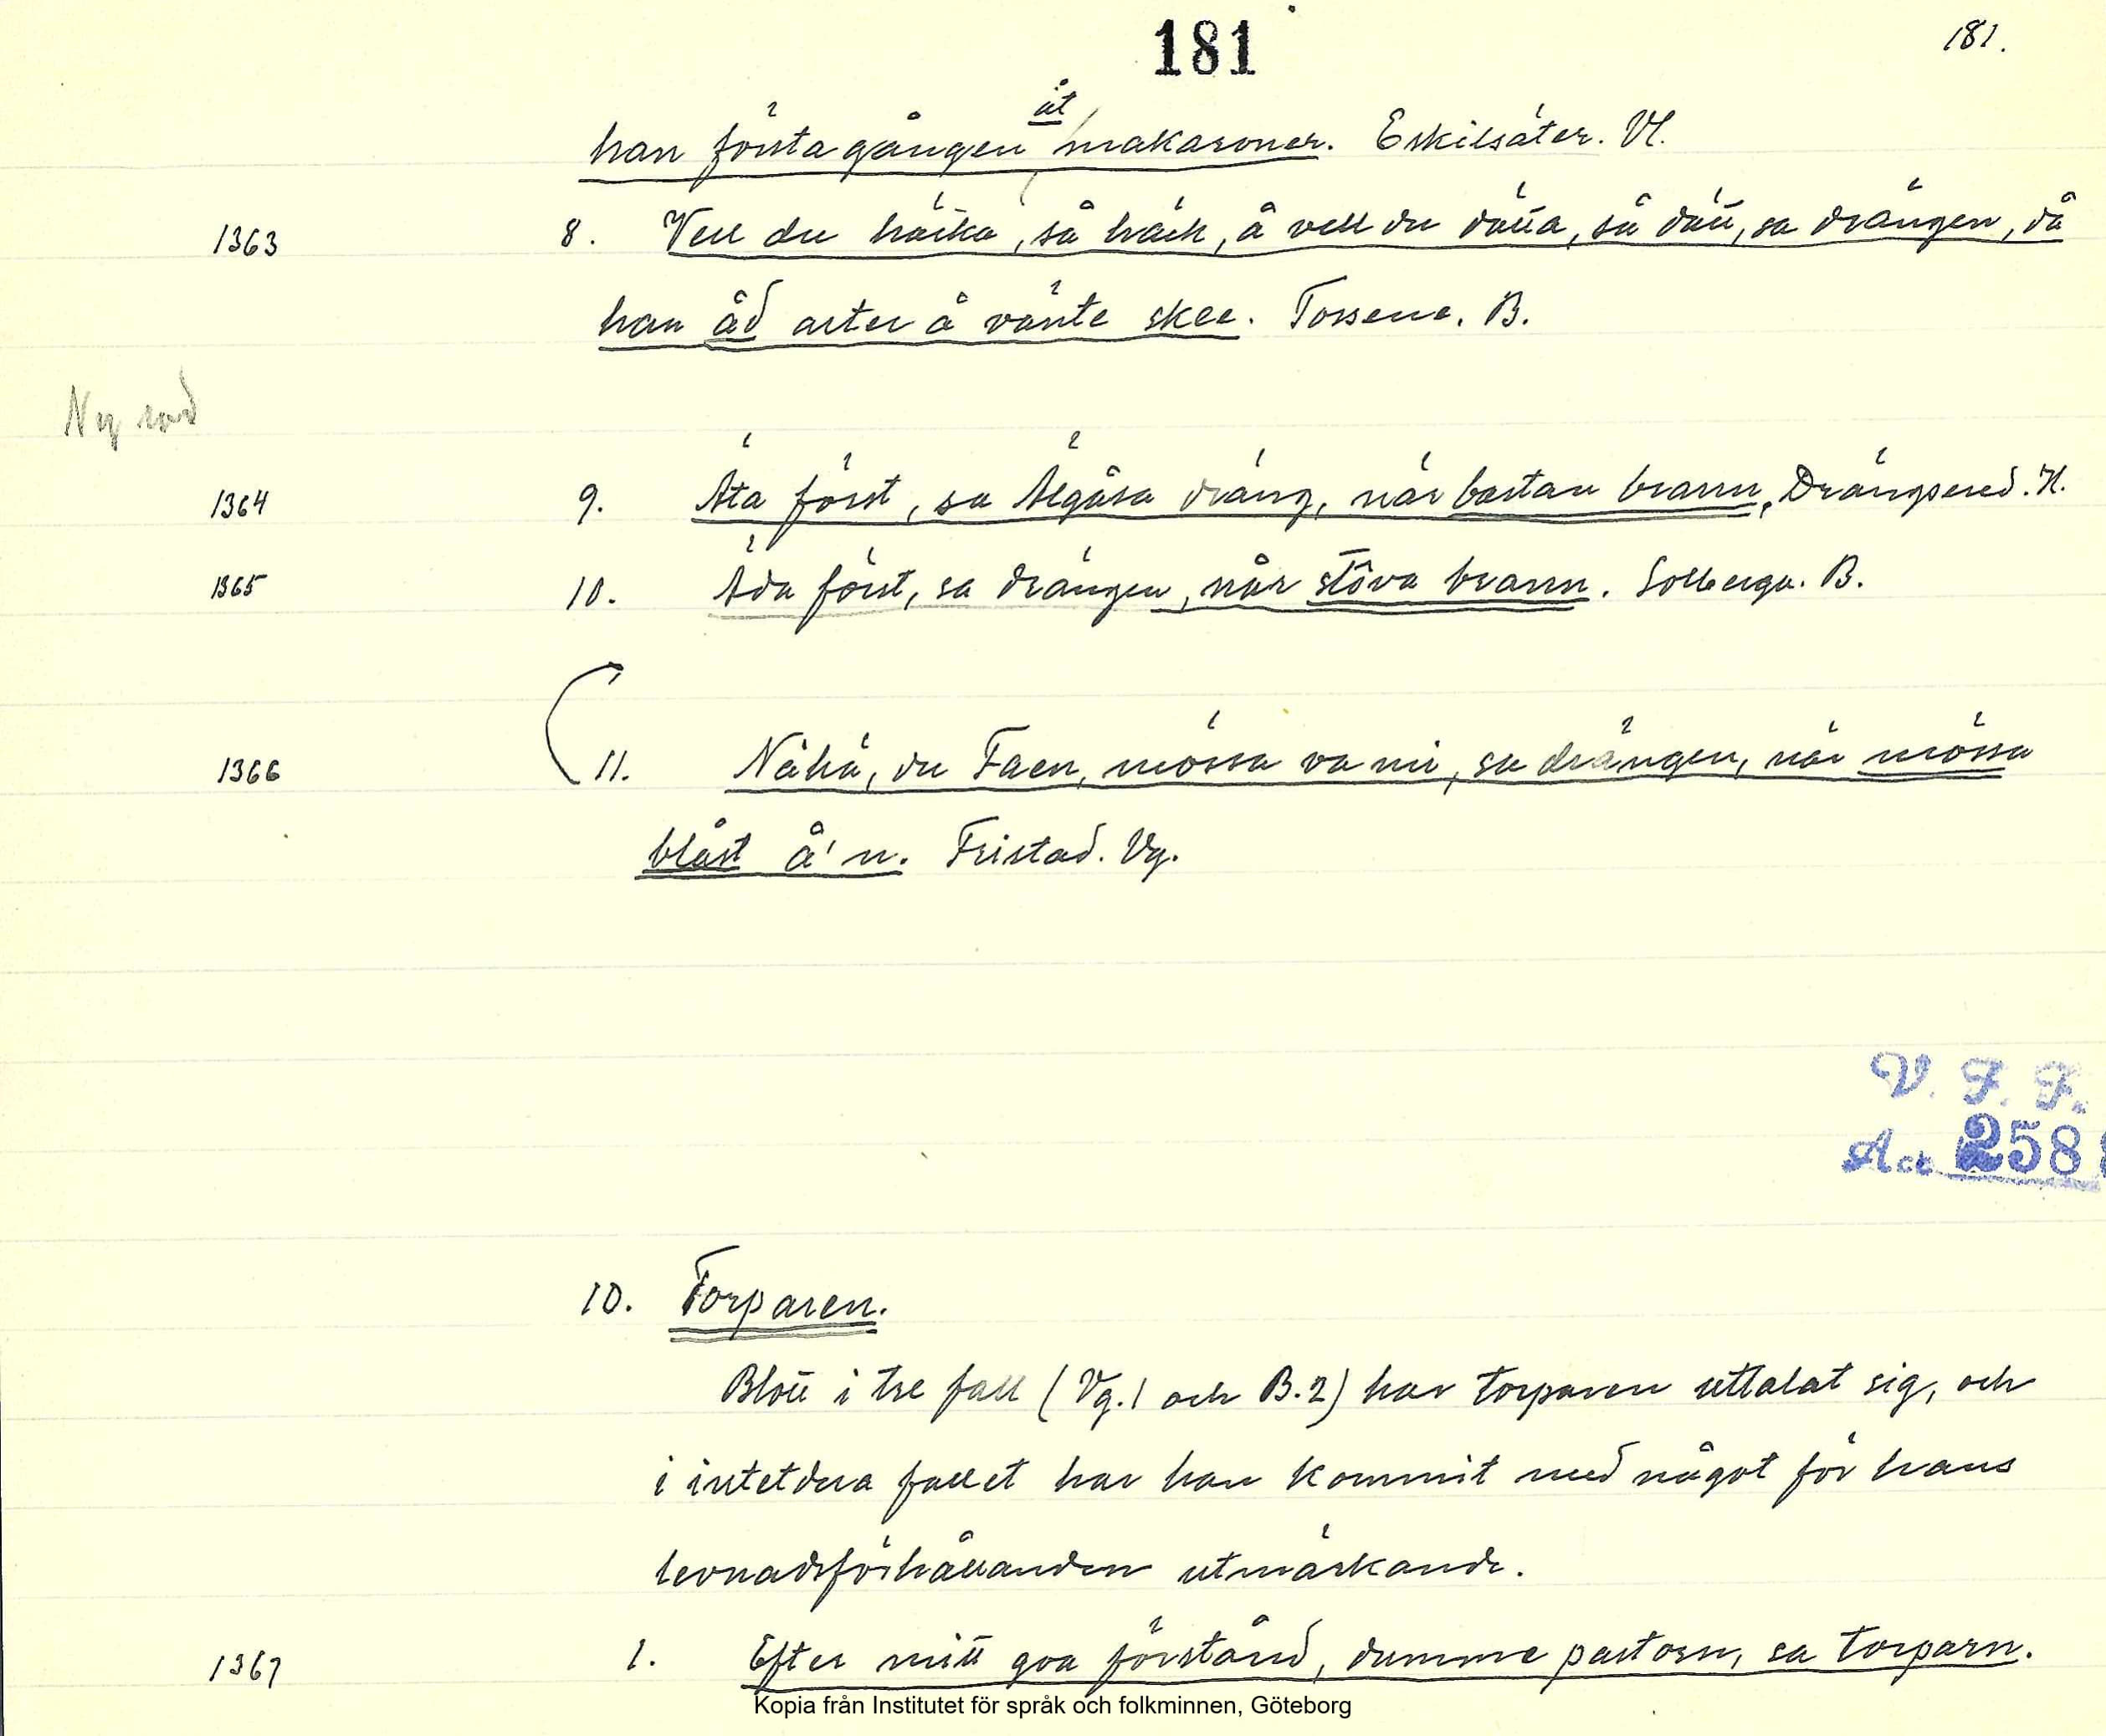 181
181.
han första gången åt makaroner. Eskilsäter. Vl.
1363 8. Vell du häcka, så häck, å vell du dätta, så dätt, sa drängen, då
han åd arter å vänte skee. Tossene. B.
Ny rad
1364 9. Äta först, sa Älgåsa dräng, när bastan brann, Drängsered. H.
1365 10. Äda först, sa drängen, når stöva brann. Solberga. B.
1366 11. Nähä, du Faen, mössa va mi, sa drängen, när mössa
blåst å'n. Fristad. Vg.
V. F. F.
Acc 258
10. Torparen.
Blott i tre fall (Vg. 1 och B. 2) har torparen uttalat sig, och
i intetdera fallet har han kommit med något för hans
levnadsförhållanden utmärkande.
1367 1. Efter mitt goa förstånd, dumme pastorn, sa torparn.
Kopia från Institutet för språk och folkminnen, Göteborg